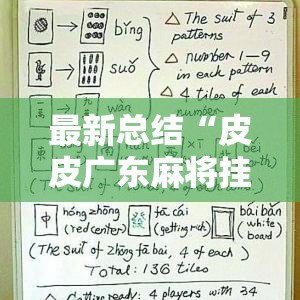 bǐng
△ The suit of 3
patterns
suǒ
△ number 1-9
in each pattern
wàn
△ 4 tiles of
each
最新总结“皮
皮广东麻将挂
hóng zhōng
(red center)
fā cái
(getting rich)
bái bǎn
(white
board)
(The Suit of Zhōng fā bái, 4 of each)
Total: 136 tiles
△ Getting ready: 4 players with 34